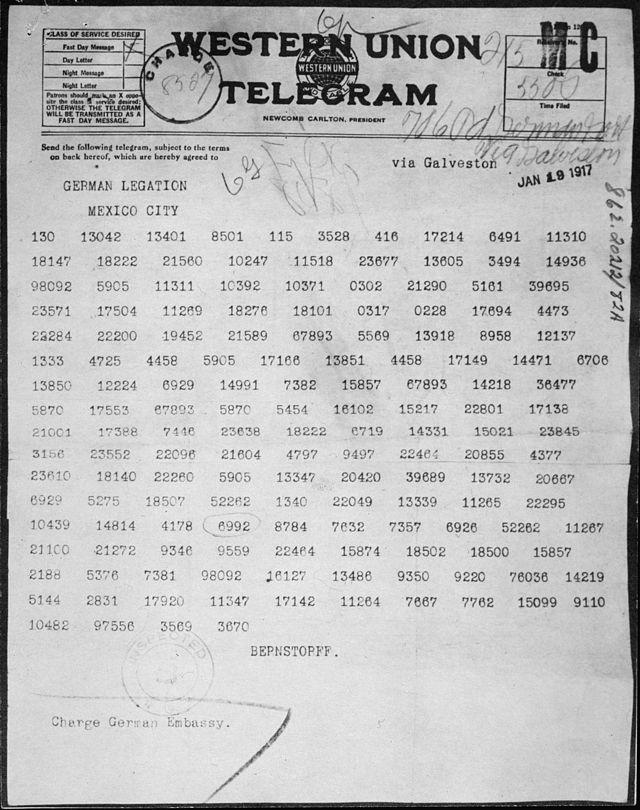 CLASS OF SERVICE DESIRED
Fast Day Message
Day Letter
Night Message
Night Letter
Patrons should mark an X oppo-
site the class of service desired;
OTHERWISE THE TELEGRAM
WILL BE TRANSMITTED AS A
FAST DAY MESSAGE.
CHARGE
WESTERN UNION
WESTERN UNION
TELEGRAM
NEWCOMB CARLTON, PRESIDENT
MC
Receiver's No.
Check
Time Filed
Send the following telegram, subject to the terms
on back hereof, which are hereby agreed to
via Galveston
JAN 19 1917
GERMAN LEGATION
MEXICO CITY
130 13042 13401 8501 115 3528 416 17214 6491 11310
18147 18222 21560 10247 11518 23677 13605 3494 14936
98092 5905 11311 10392 10371 0302 21290 5161 39695
23571 17504 11269 18276 18101 0317 0228 17694 4473
22284 22200 19452 21589 67893 5569 13918 8958 12137
1333 4725 4458 5905 17166 13851 4458 17149 14471 6706
13850 12224 6929 14991 7382 15857 67893 14218 36477
5870 17553 67893 5870 5454 16102 15217 22801 17138
21001 17388 7446 23638 18222 6719 14331 15021 23845
3156 23552 22096 21604 4797 9497 22464 20855 4377
23610 18140 22260 5905 13347 20420 39689 13732 20667
6929 5275 18507 52262 1340 22049 13339 11265 22295
10439 14814 4178 6992 8784 7632 7357 6926 52262 11267
21100 21272 9346 9559 22464 15874 18502 18500 15857
2188 5376 7381 98092 16127 13486 9350 9220 76036 14219
5144 2831 17920 11347 17142 11264 7667 7762 15099 9110
10482 97556 3569 3670
BEPNSTOPFF.
INSPECTED
Charge German Embassy.